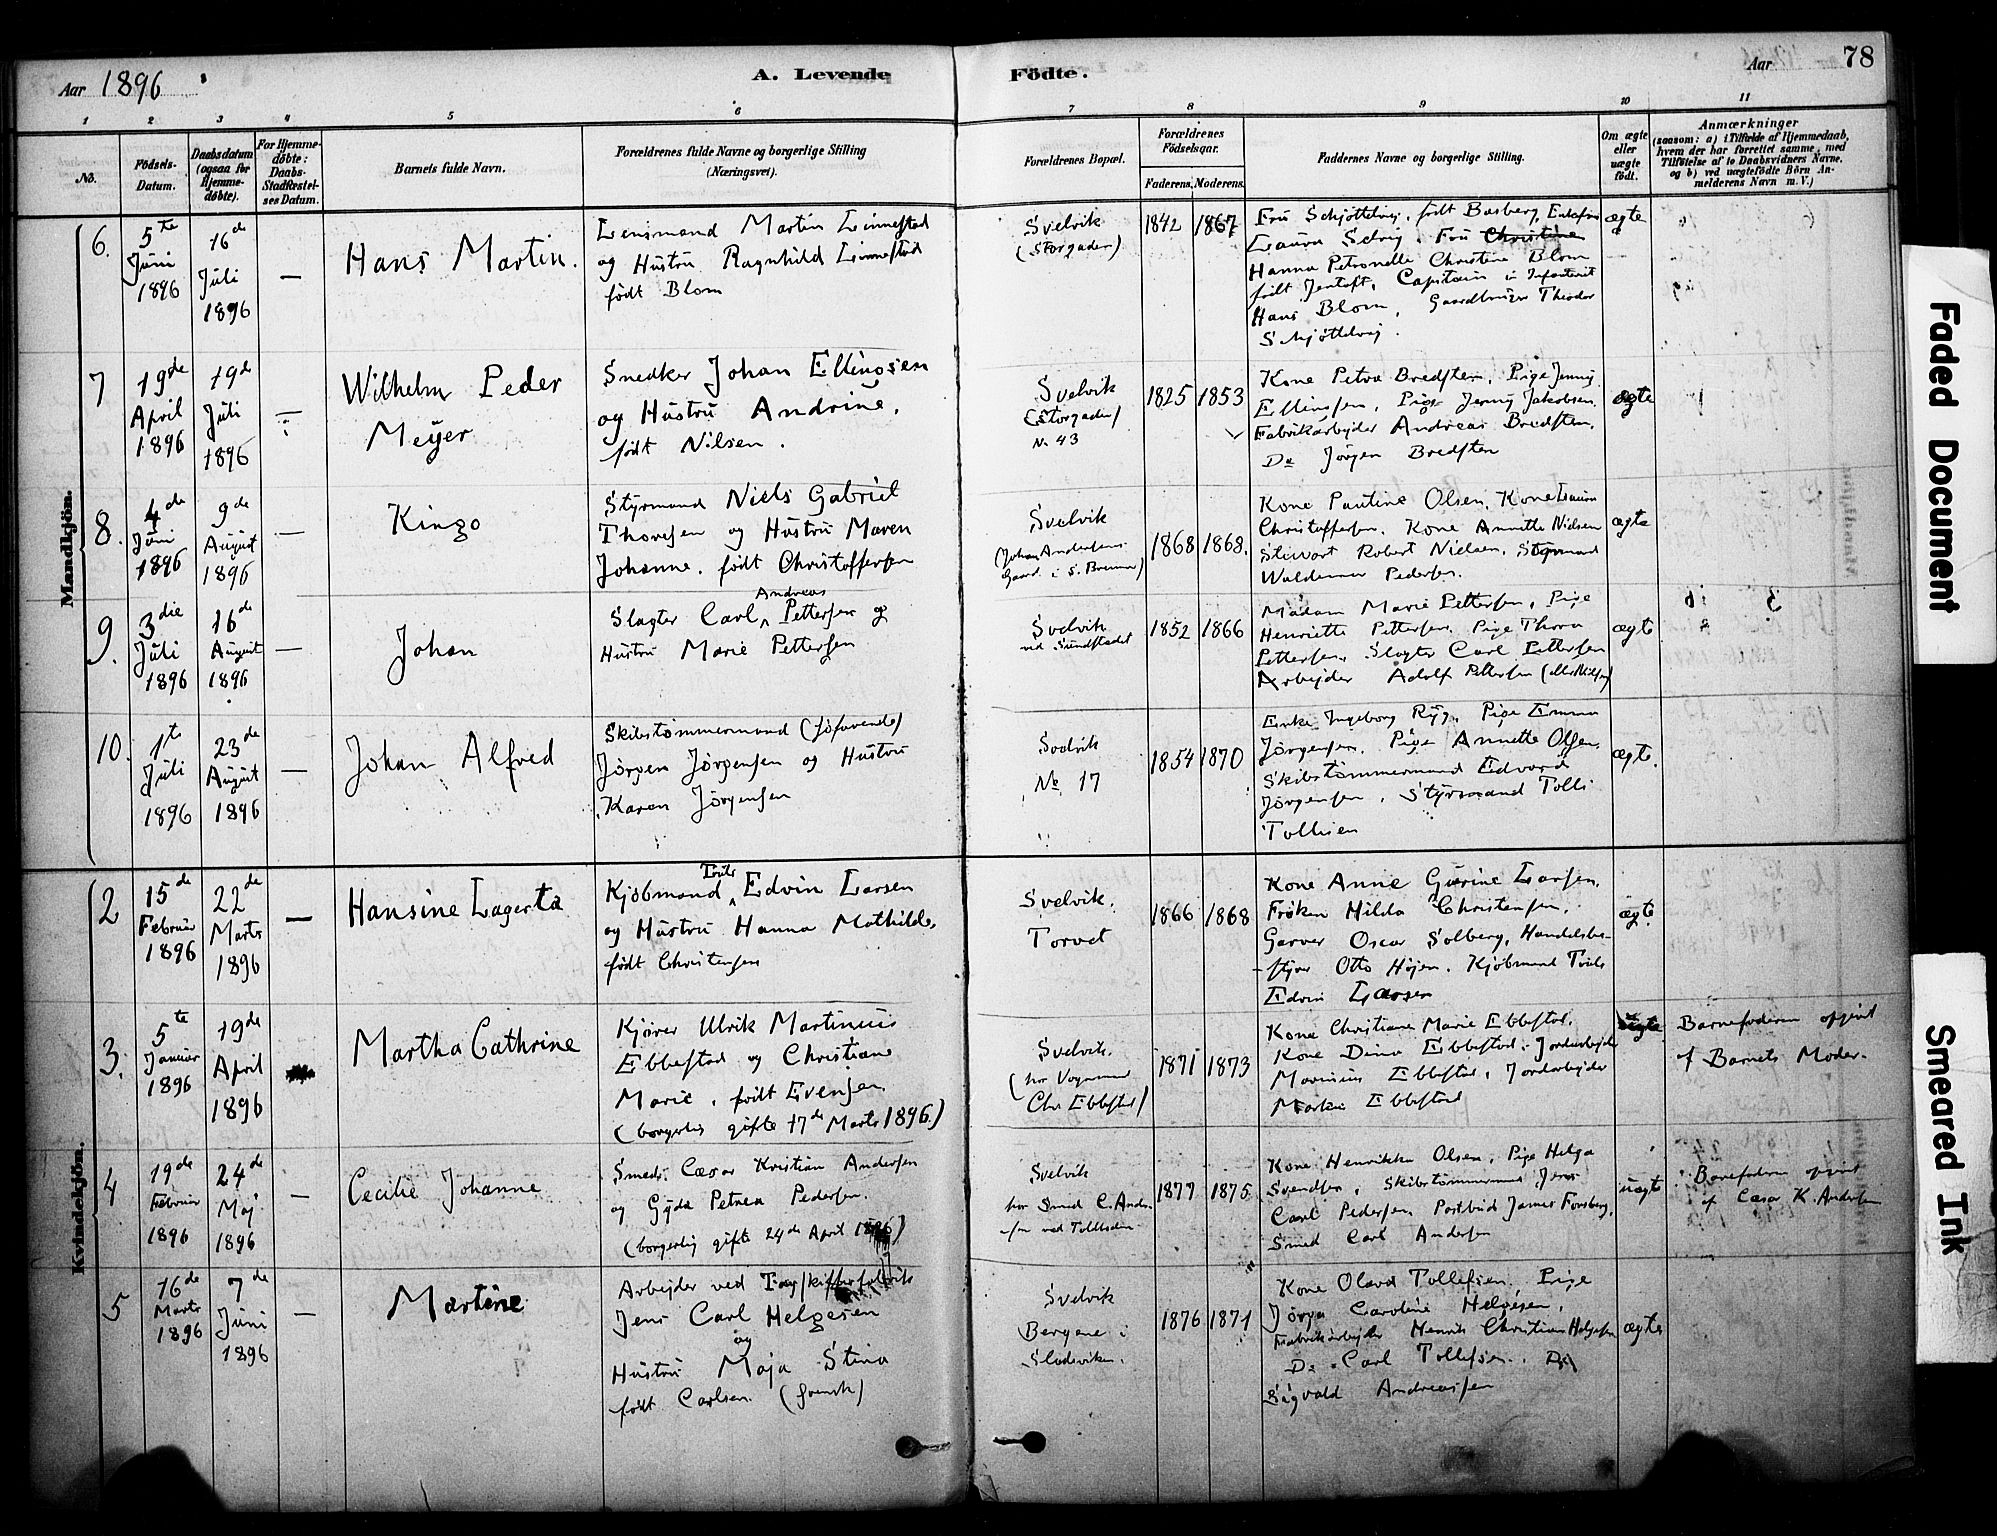 Aar 1896
A. Levende
Födte.
Aar
78
1 2 3 4 5 6 7 8 9 10 11
No.
Födsels-Datum.
Daabsdatum (ogsaa for Hjemme-döbte).
For Hjemme-döbte: Daabs-Stadfæstel-ses Datum.
Barnets fulde Navn.
Forældrenes fulde Navne og borgerlige Stilling
(Næringsvei).
Forældrenes Bopæl.
Forældrenes Födselsaar.
Faderens. Moderens.
Faddernes Navne og borgerlige Stilling.
Om ægte eller uægte födt.
Anmærkninger
(saasom: a) i Tilfælde af Hjemmedaab,
hvem der har forrettet samme, med
Tilföielse af to Daabsvidners Navne,
og b) ved uægtefödte Börn An-
melderens Navn m. V.)
Mandkjön.
6.
5te
Juni
1896
16de
Juli
1896
—
Hans Martin.
Lensmand Martin Linnestad
og Hustru Ragnhild Linnestad
født Blom
Svelvik
(Storgaden)
1842 1867
Fru Schjöttelvig, født Basberg, Enkefru
Laura Selvig. Fru Christine
Hanna Petronelle Christine Blom
født Jentoft, Captain i Infanteriet
Hans Blom, Gaardbruger Theodor
Schjöttelvig.
ægte
7
19de
April
1896
19de
Juli
1896
—
Wilhelm Peder
Meyer
Snedker Johan Ellingsen
og Hustru Andrine,
født Nilsen.
Svelvik
(Storgaden)
N. 43
1825 1853
Kone Petra Bredsten, Pige Jenny
Ellingsen, Pige Jenny Jakobsen.
Fabrikarbejder Andreas Bredsten,
Do Jörgen Bredsten
ægte
8.
4de
Juni
1896
9de
August
1896
—
Kingo
Styrmand Niels Gabriel
Thoresen og Hustru Maren
Johanne, født Christoffersen
Svelvik
(Johan Andersens
Gaard i S. Brenna)
1868 1868.
Kone Pauline Olsen, Kone Laura
Christoffersen. Kone Annette Nielsen
Stewart Robert Nielsen. Styrmand
Waldemar Pedersen.
ægte
9.
3die
Juli
1896
16de
August
1896
—
Johan
Andreas
Slagter Carl Pettersen og
Hustru Marie Pettersen
Svelvik
ved Sundstedet
1852 1866
Madam Marie Pettersen, Pige
Henriette Pettersen. Pige Thora
Pettersen, Slagter Carl Pettersen
Arbejder Adolf Pettersen
ægte
10.
1te
Juli
1896
23de
August
1896
—
Johan Alfred
Skibstömmermand (Söfarende)
Jörgen Jörgensen og Hustru
Karen Jörgensen
Svelvik
No 17
1854 1870
Enke Ingeborg Ryg, Pige Emma
Jörgensen, Pige Annette Olsen,
Skibstömmermand Edvard
Jörgensen, Styrmand Tolli
Tollisen
ægte.
Kvindekjön.
2
15de
Februar
1896
22de
Marts
1896
—
Hansine Lagerta
Kjöbmand Edvin Larsen
og Hustru Hanna Mathilde,
født Christensen
Svelvik.
Torvet
1866 1868
Kone Anne Gurine Larsen.
Fröken Hilda Christensen,
Garver Oscar Solberg, Handelsbe-
styrer Otto Höjen. Kjöbmand
Edvin Larsen
ægte
3.
5te
Januar
1896
19de
April
1896
Martha Cathrine
Kjörer Ulrik Martinius
Ebbestad og Christiane
Marie, født Evensen
(borgerlig gifte 17de Marts 1896.)
Svelvik.
(hos Vognmand
Chr Ebbestad)
1871 1873
Kone Christiane Marie Ebbestad,
Kone Dina Ebbestad, Jordarbejder
Marinius Ebbestad, Jordarbejder
Martin Ebbestad
uægte
Barnefaderen opgivet
af Barnets Moder.
4
19de
Februar
1896
24de
Maj
1896
—
Cecilie Johanne
Smed Cæsar Kristian Andersen
og Gyda Petrea Pedersen.
(borgerlig gifte 24de April 1896)
Svelvik
hos Smed C. Ander-
sen ved Toldboden
1877 1875
Kone Henrikke Olsen, Pige Helga
Svendsen, Skibstömmermand Jens
Carl Pedersen, Postbud James Forsberg,
Smed Carl Andersen
uægte
Barnefaderen opgivet
af Cæsar K. Andersen
5
16de
Marts
1896
7de
Juni
1896
—
Martine
Arbejder ved Tagskiferfabrik
Jens Carl Helgesen
og
Hustru Maja Stina
født Carlsen (svensk)
Svelvik
Bergene i
Slodeviken.
1876 1871
Kone Olava Tollefsen. Pige
Jörga Caroline Helgesen,
Fabrikarbejder Henrik Christian Helgesen
Do Carl Tollefsen. Do
Sigvald Andreassen
ægte
Faded Document
Smeared Ink